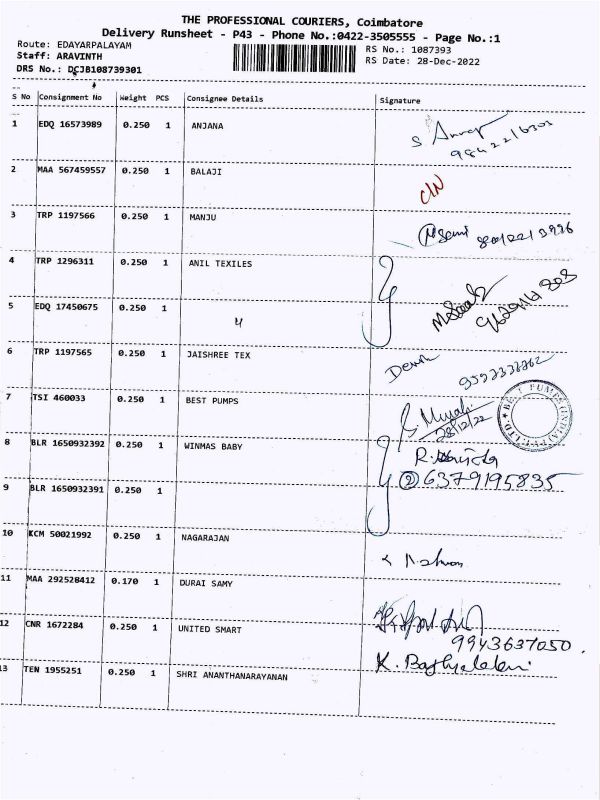 THE PROFESSIONAL COURIERS, Coimbatore
Delivery Runsheet - P43 - Phone No.:0422-3505555 - Page No.:1
Route: EDAYARPALAYAM RS No.: 1087393
Staff: ARAVINTH RS Date: 28-Dec-2022
DRS No.: DCJB108739301
S No Consignment No Weight PCS Consignee Details Signature
1 EDQ 16573989 0.250 1 ANJANA
2 MAA 567459557 0.250 1 BALAJI
3 TRP 1197566 0.250 1 MANJU
4 TRP 1296311 0.250 1 ANIL TEXILES
5 EDQ 17450675 0.250 1 4
6 TRP 1197565 0.250 1 JAISHREE TEX
7 TSI 460033 0.250 1 BEST PUMPS
28/12/22
8 BLR 1650932392 0.250 1 WINMAS BABY
② 6379195835
9 BLR 1650932391 0.250 1
10 KCM 50021992 0.250 1 NAGARAJAN
11 MAA 292528412 0.170 1 DURAI SAMY
12 CNR 1672284 0.250 1 UNITED SMART
9943637050.
13 TEN 1955251 0.250 1 SHRI ANANTHANARAYANAN